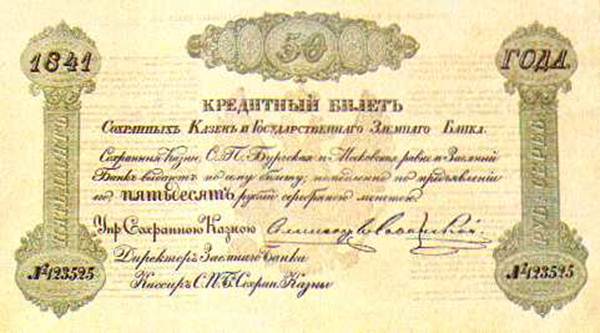 50
1841
ГОДА.
КРЕДИТНЫЙ БИЛЕТЪ
СОХРАННЫХЪ КАЗЕНЪ И ГОСУДАРСТВЕННАГО ЗАЕМНАГО БАНКА.
Сохранныя Казны, С.П.Бургская и Московская равно и Заемный
Банкъ выдаютъ по сему билету, немедленно по предъявленіи
его ПЯТЬДЕСЯТЪ рублей серебряною монетою.
Упр. Сохранною Казною
Директоръ Заемнаго Банка
Кассиръ С.П.Б. Сохран. Казны
ПЯТЬДЕСЯТЪ
РУБ. СЕРЕБ.
№ 123525
№ 123525